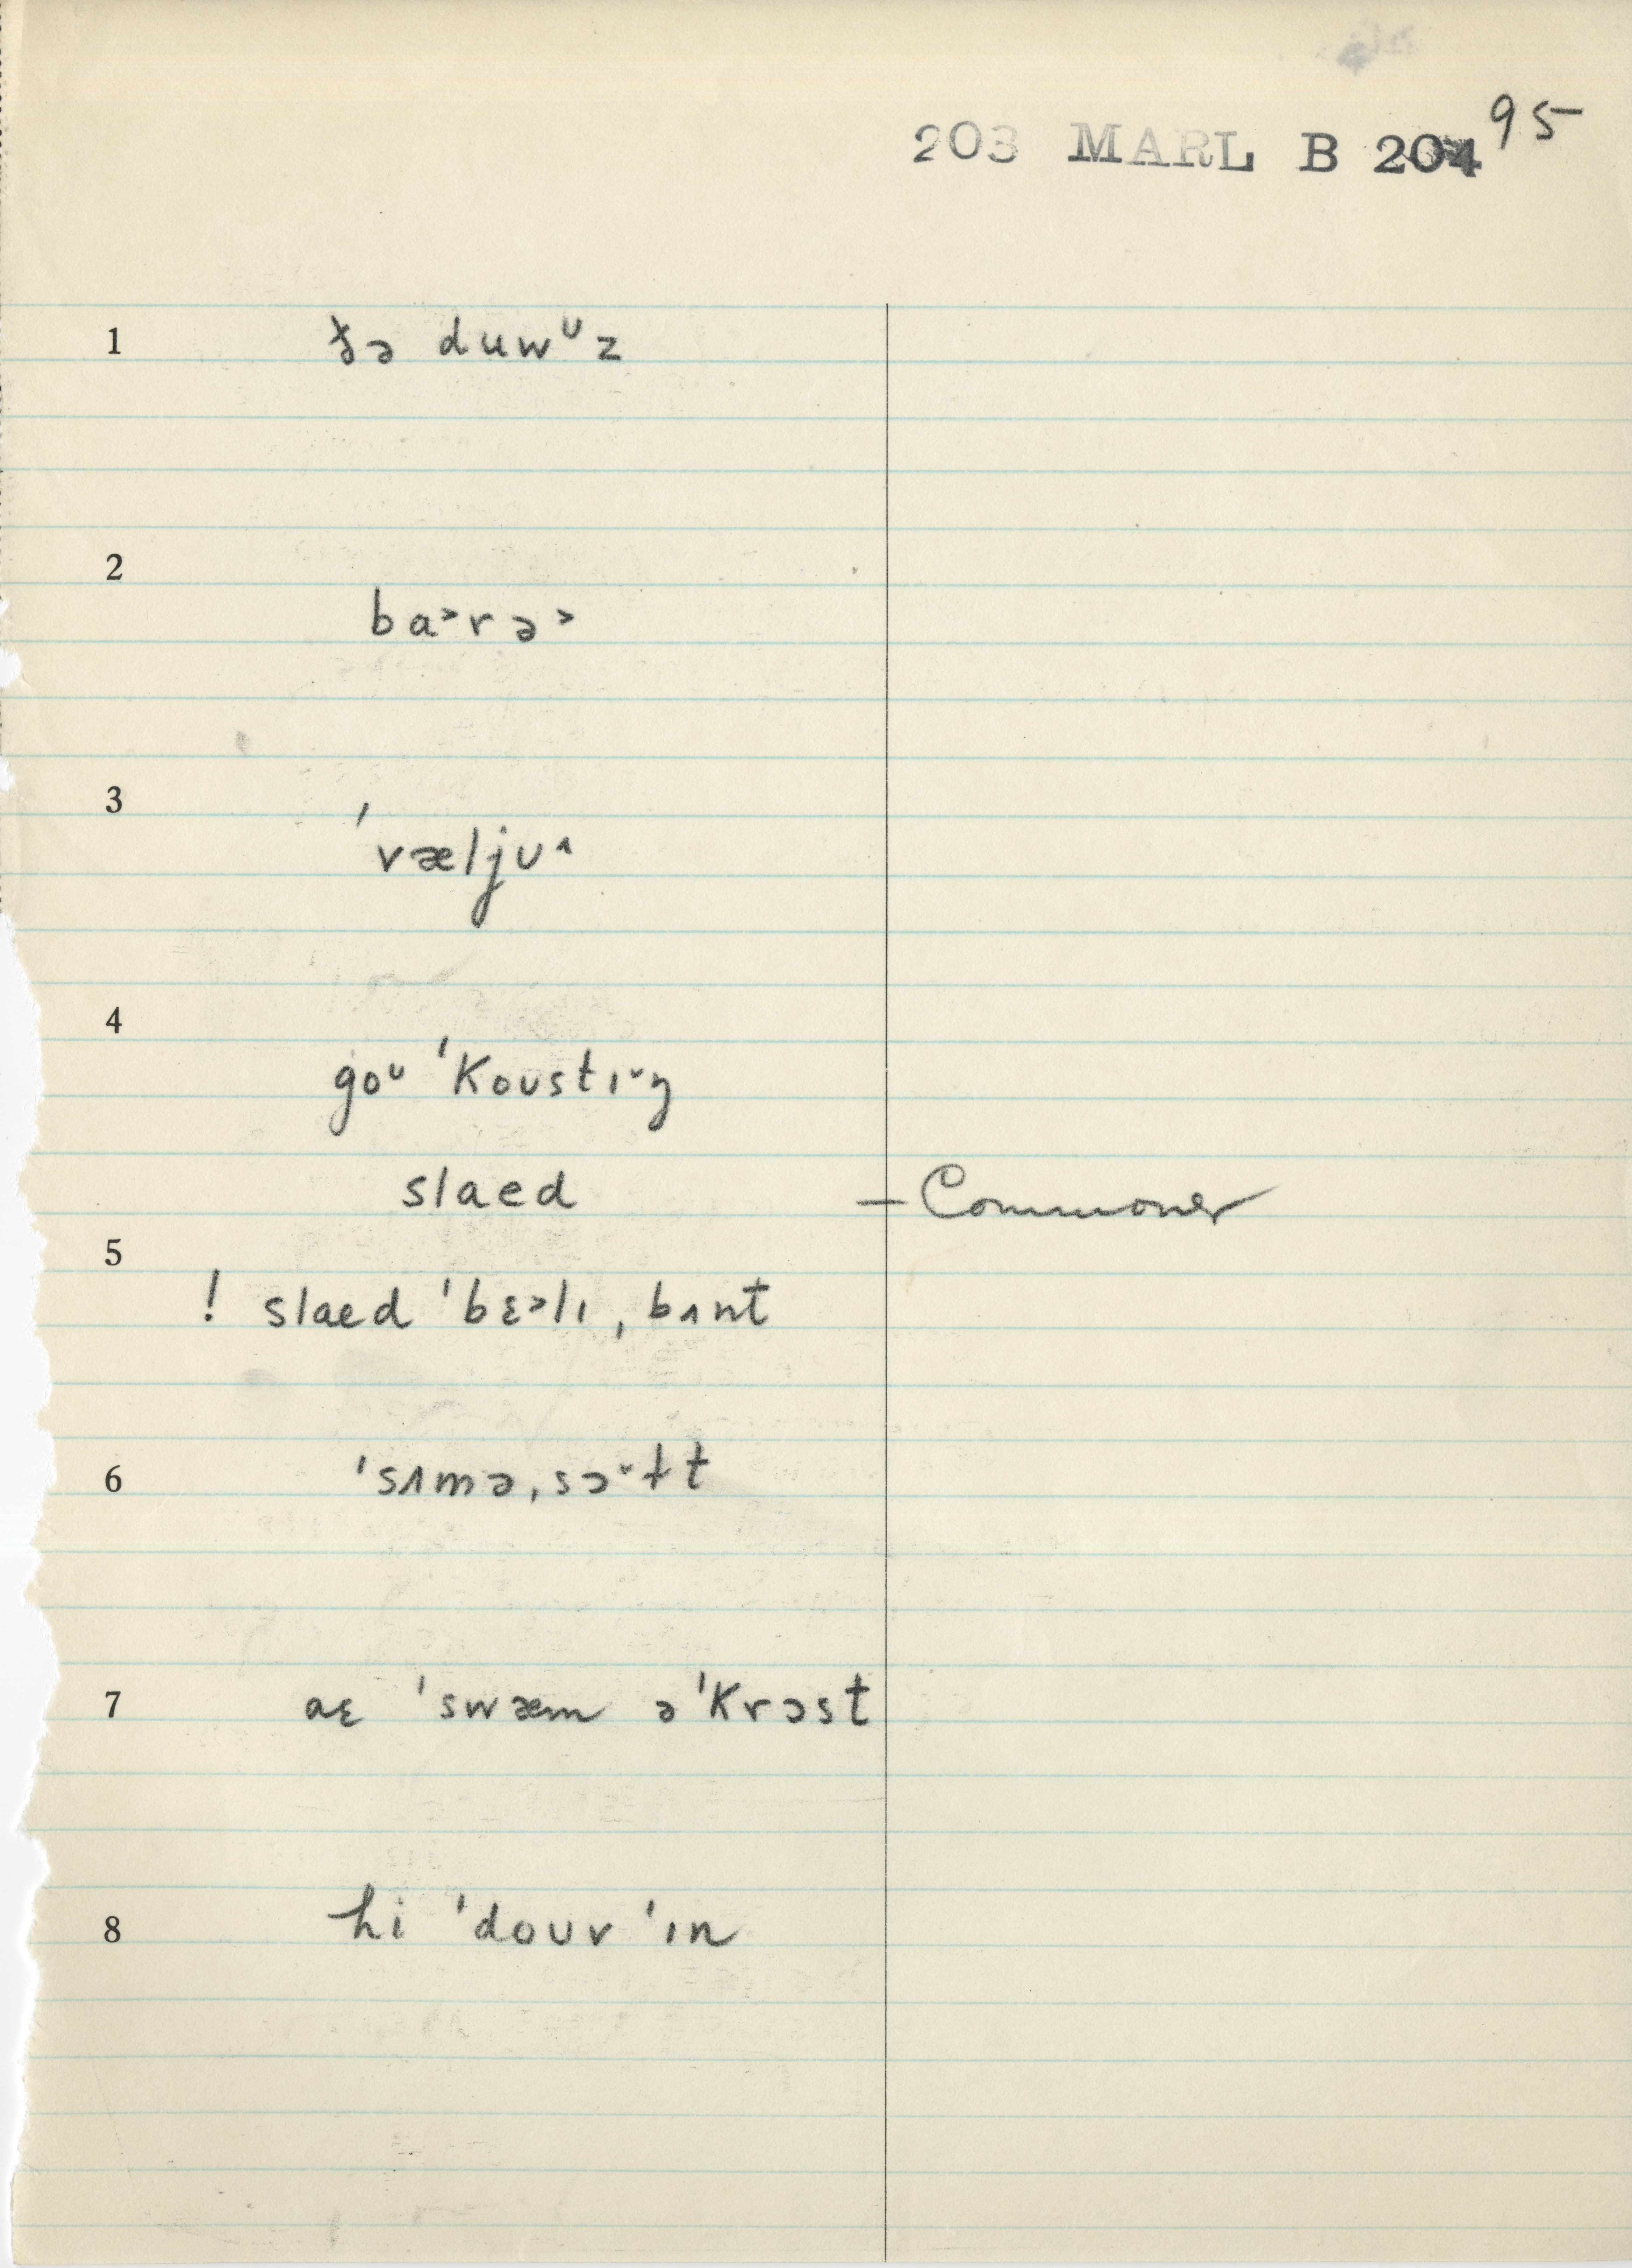 203 MARL B 204 95
1 ðə duwᶷz
2 ba˃rə˃
3 ˈvæljʊ˄
4 goᶷ ˈKoʊstɪ˅ŋ
slaed – Commoner
5
! slaed ˈbɛ˃lɪ ˌbʌnt
6 ˈsʌməˌsɔ˅ɫt
7 aɛ ˈswæm əˈKrɔst
8 hi ˈdoʊv ˈɪn